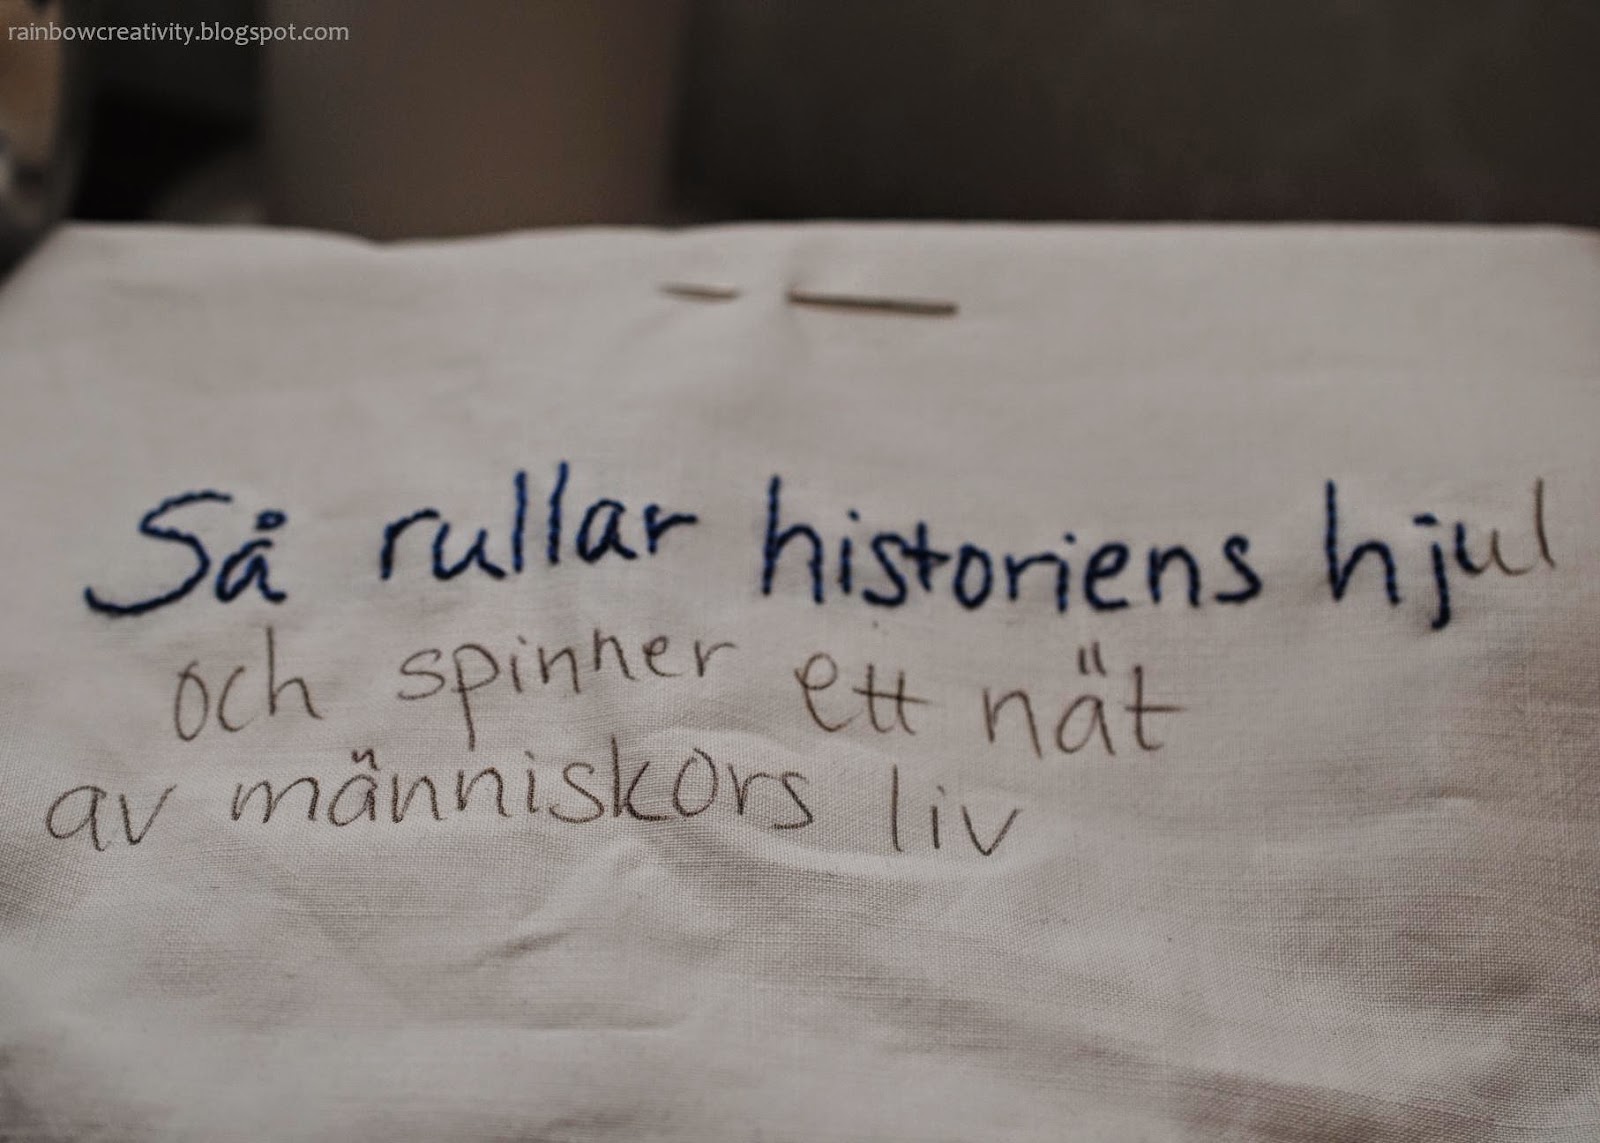 rainbowcreativity.blogspot.com
Så rullar historiens hjul
och spinner ett nät
av människors liv